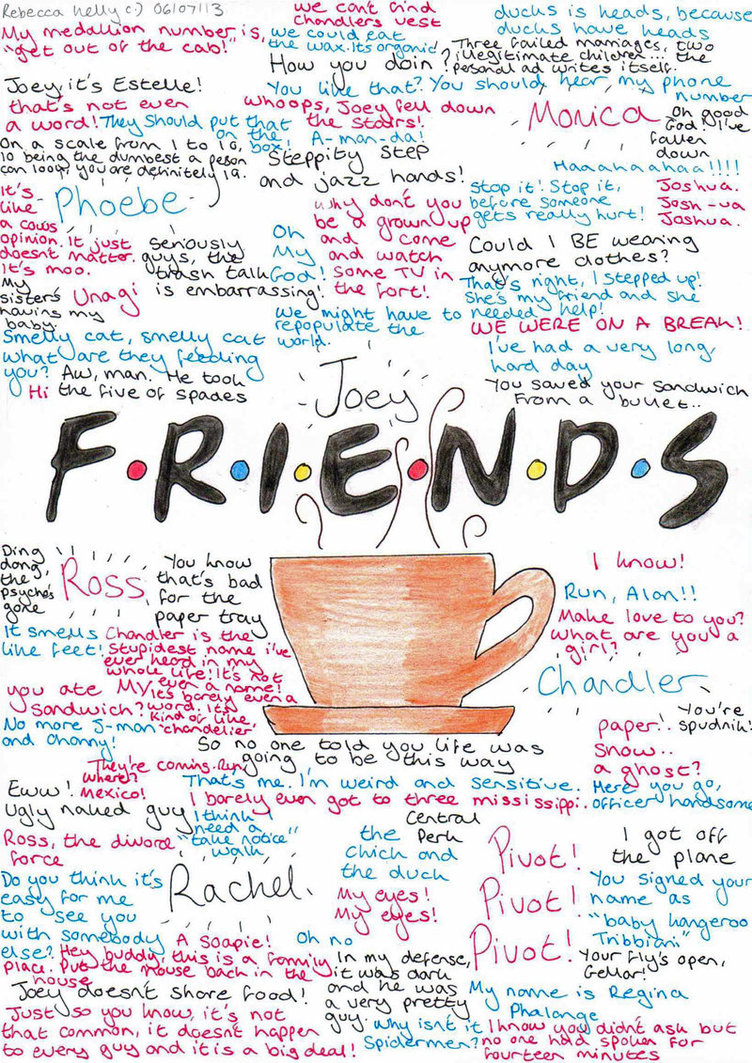 Rebecca Kelly c:) 06/07/13
My medallion number is,
"get out of the cab!"
we can't find
chandlers vest
we could eat
the wax. Its organic!
How you doin?
ducks is heads, because
ducks have heads
Three failed marriages, two
illegitimate children... the
personal ad writes itself.
Joey it's Estelle!
that's not even
a word!
They should put that
on the
box!
whoops, Joey fell down
the stairs!
You like that? You should hear my phone
number
Monica
Oh good
God! I've
fallen
down
On a scale from 1 to 10,
10 being the dumbest a peson
can look, you are definitely 19.
A-man-da!
Steppity step
and jazz hands!
Haaahaahaa!!!!
It's
like
a cows
opinion. It just
doesnt matter.
It's moo.
Phoebe
Why don't you
be a grown up
and come
and watch
some TV in
the fort!
Stop it! Stop it,
before someone
gets really hurt!
Joshua.
Josh-ua
Joshua.
Seriously
guys, the
trash talk
is embarrassing!
Oh
My
God!
Could I BE wearing
anymore clothes?
My
sisters
having my
baby.
Unagi
That's right, I stepped up!
She's my friend and she
needed help!
We might have to
repopulate the
world.
WE WERE ON A BREAK!
Smelly cat, smelly cat
what are they feeding
you?
I've had a very long,
hard day
Aw, man. He took
the five of spades
Hi
Joey
You saved your sandwich
from a bullet..
F.R.I.E.N.D.S
Ding
dong,
the
psycho's
gone
Ross
You know
that's bad
for the
paper tray
I know!
Run, Alan!!
It smells
like feet!
Chandler is the
stupidest name i've
ever heard in my
whole life! It's not
even a name!
Its barely even a
word. Its
kind of like
'chandelier'
Make love to you?
what are you a
girl?
you ate My
sandwich?
Chandler
No more J-man
and Channy!
paper..
snow..
a ghost?
You're
spudnik!
So no one told you life was
going to be this way
They're coming. Run!
Where?
Mexico!
That's me. I'm weird and sensitive.
Here you go,
officer handsome
Eww!
Ugly naked guy
I barely even got to three mississippi.
I think I
need a
"take notice"
walk
Central
Perk
Ross, the divorce
force
the
chick and
the duck
Pivot!
Pivot!
Pivot!
I got off
the plane
Do you think it's
easy for me
to see you
with somebody
else?
Rachel
My eyes!
My eyes!
You signed your
name as
"baby kangeroo
Tribbiani"
A soapie!
Oh no
Hey buddy, this is a family
place. Put the mouse back in the
house
In my defense,
it was dark
and he was
a very pretty
guy.
Your fly's open,
Gellar!
Joey doesn't share food!
My name is Regina
Phalange
Just so you know, it's not
that common, it doesn't happen
to every guy and it is a big deal!
Why isn't it
Spidermen?
I know you didnt ask but
no one had spoken for
fourteen minutes